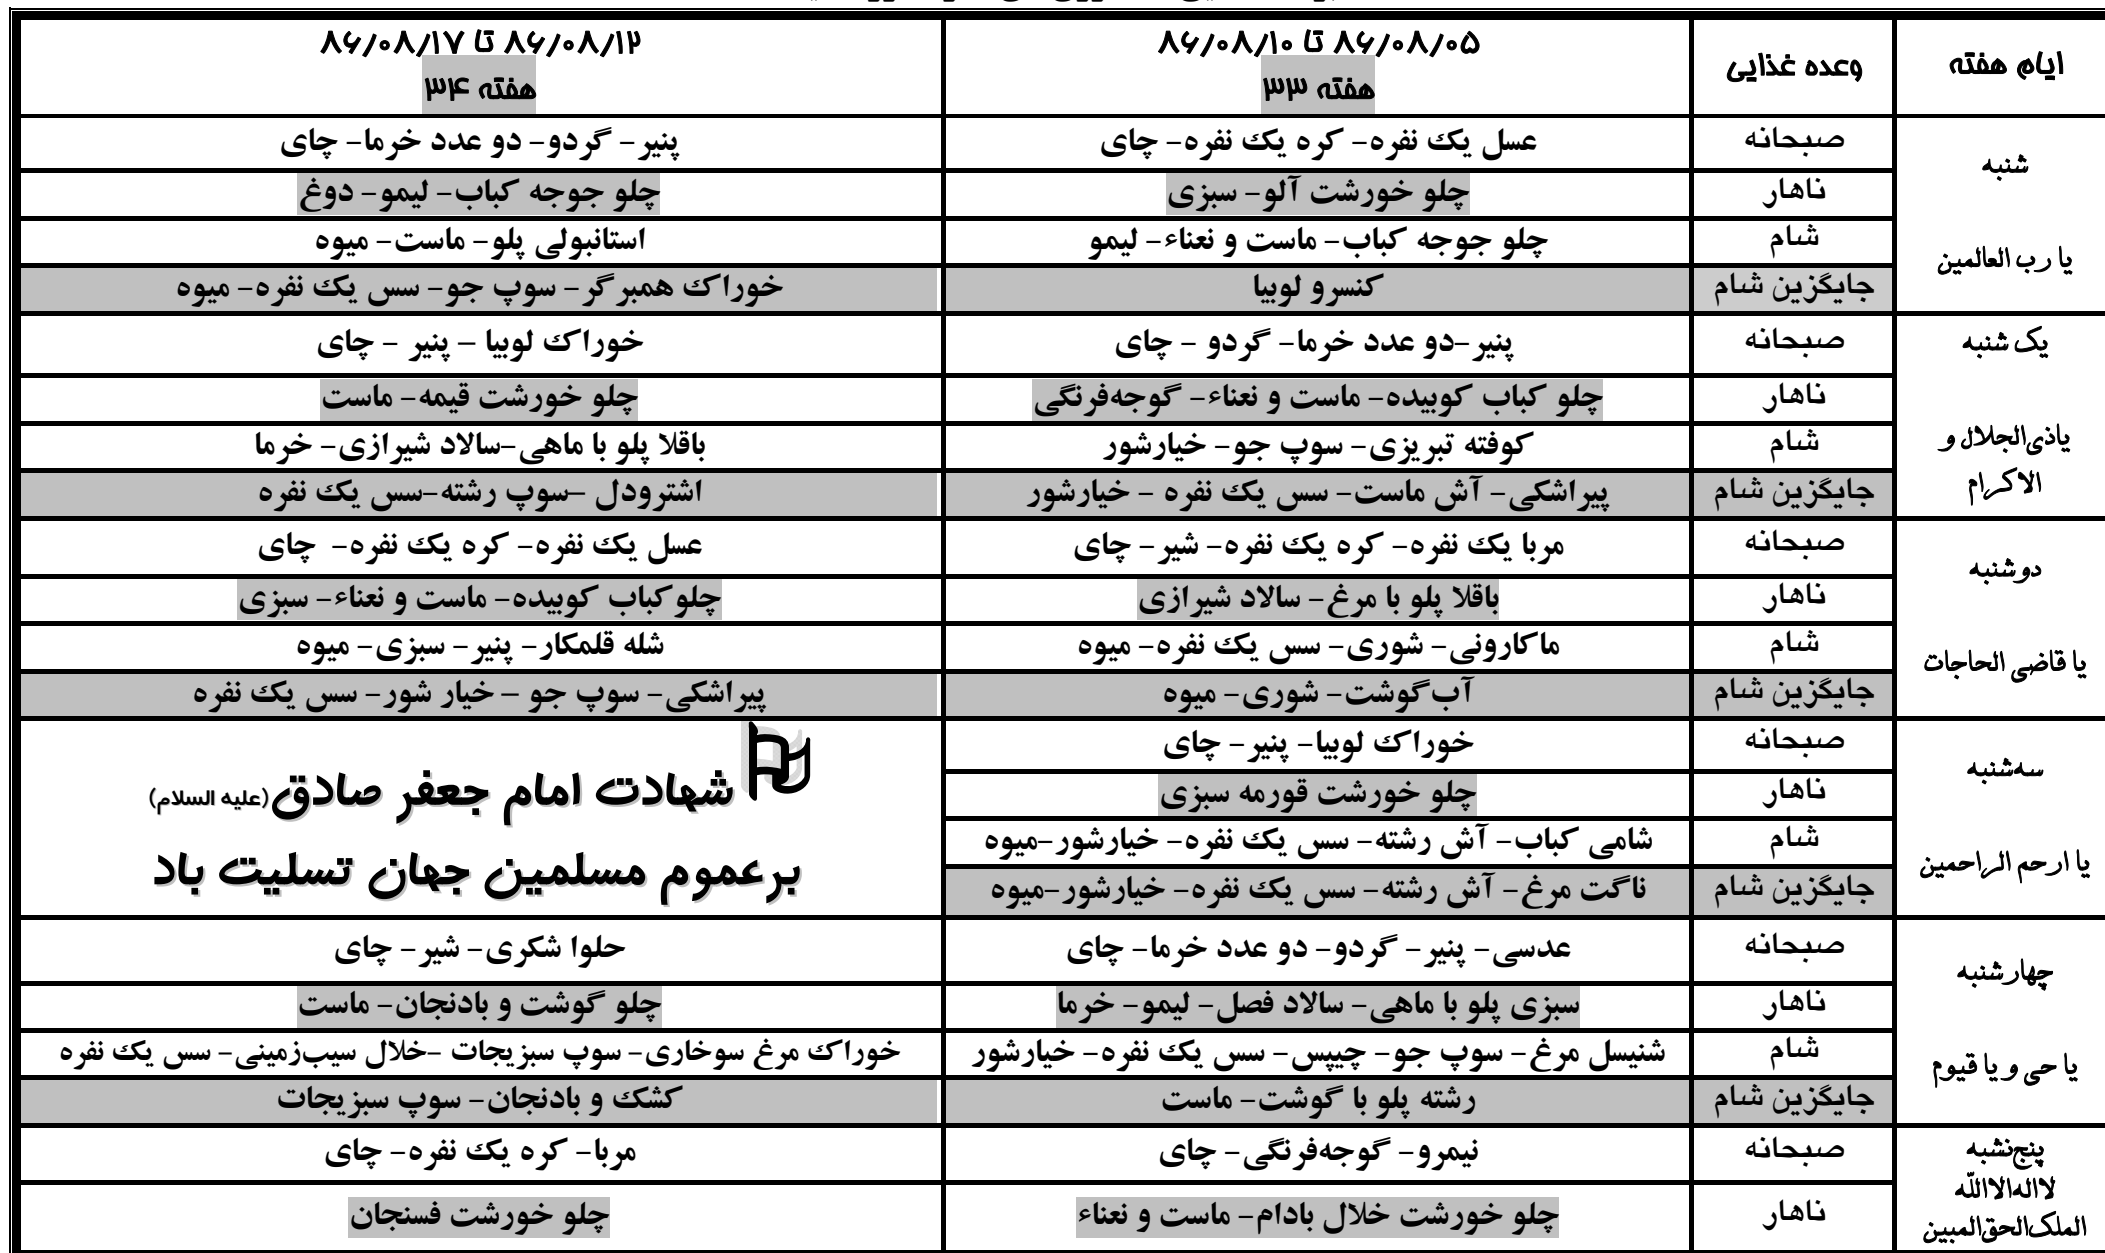 ایام هفته
وعده غذایی
۸۶/۰۸/۰۵ تا ۸۶/۰۸/۱۰
هفته ۳۳
۸۶/۰۸/۱۲ تا ۸۶/۰۸/۱۷
هفته ۳۴
شنبه
یا رب العالمین
صبحانه
عسل یک نفره- کره یک نفره- چای
پنیر- گردو- دو عدد خرما- چای
ناهار
چلو خورشت آلو- سبزی
چلو جوجه کباب- لیمو- دوغ
شام
چلو جوجه کباب- ماست و نعناء- لیمو
استانبولی پلو- ماست- میوه
جایگزین شام
کنسرو لوبیا
خوراک همبرگر- سوپ جو- سس یک نفره- میوه
یک شنبه
یاذی‌الجلال و
الاکرام
صبحانه
پنیر-دو عدد خرما- گردو - چای
خوراک لوبیا – پنیر – چای
ناهار
چلو کباب کوبیده- ماست و نعناء- گوجه‌فرنگی
چلو خورشت قیمه- ماست
شام
کوفته تبریزی- سوپ جو- خیارشور
باقلا پلو با ماهی-سالاد شیرازی- خرما
جایگزین شام
پیراشکی- آش ماست- سس یک نفره - خیارشور
اشترودل –سوپ رشته-سس یک نفره
دوشنبه
یا قاضی الحاجات
صبحانه
مربا یک نفره- کره یک نفره- شیر- چای
عسل یک نفره- کره یک نفره- چای
ناهار
باقلا پلو با مرغ- سالاد شیرازی
چلوکباب کوبیده- ماست و نعناء- سبزی
شام
ماکارونی- شوری- سس یک نفره- میوه
شله قلمکار- پنیر- سبزی- میوه
جایگزین شام
آب‌گوشت- شوری- میوه
پیراشکی- سوپ جو – خیار شور- سس یک نفره
سه‌شنبه
یا ارحم الراحمین
صبحانه
خوراک لوبیا- پنیر- چای
ناهار
چلو خورشت قورمه سبزی
شام
شامی کباب- آش رشته- سس یک نفره- خیارشور-میوه
جایگزین شام
ناگت مرغ- آش رشته- سس یک نفره- خیارشور-میوه
شهادت امام جعفر صادق(علیه السلام)
برعموم مسلمین جهان تسلیت باد
چهارشنبه
یا حی و یا قیوم
صبحانه
عدسی- پنیر- گردو- دو عدد خرما- چای
حلوا شکری- شیر- چای
ناهار
سبزی پلو با ماهی- سالاد فصل- لیمو- خرما
چلو گوشت و بادنجان- ماست
شام
شنیسل مرغ- سوپ جو- چیپس- سس یک نفره- خیارشور
خوراک مرغ سوخاری- سوپ سبزیجات -خلال سیب‌زمینی- سس یک نفره
جایگزین شام
رشته پلو با گوشت- ماست
کشک و بادنجان- سوپ سبزیجات
پنج‌نشبه
لااله‌الااللّه
الملک‌الحق‌المبین
صبحانه
نیمرو- گوجه‌فرنگی- چای
مربا- کره یک نفره- چای
ناهار
چلو خورشت خلال بادام- ماست و نعناء
چلو خورشت فسنجان